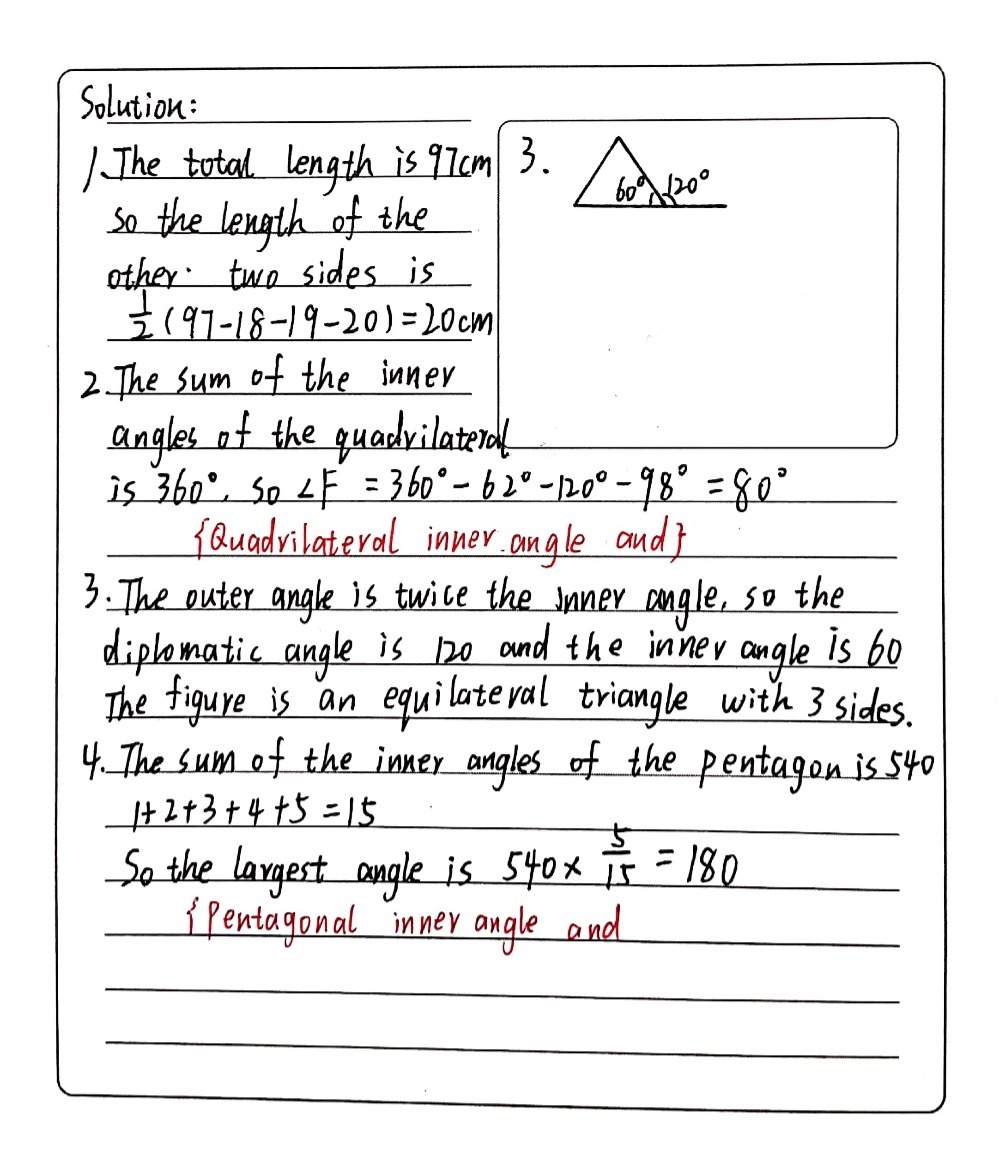 Solution:
1. The total length is 97cm
so the length of the
other. two sides is
1/2 (97-18-19-20)=20cm
2. The sum of the inner
angles of the quadrilateral
is 360°. So ∠F = 360° - 62° - 120° - 98° = 80°
{Quadrilateral inner angle and}
3. The outer angle is twice the inner angle, so the
diplomatic angle is 120 and the inner angle is 60
The figure is an equilateral triangle with 3 sides.
4. The sum of the inner angles of the pentagon is 540
1+2+3+4+5=15
So the largest angle is 540× 5/15 = 180
{Pentagonal inner angle and
3.
60° 120°